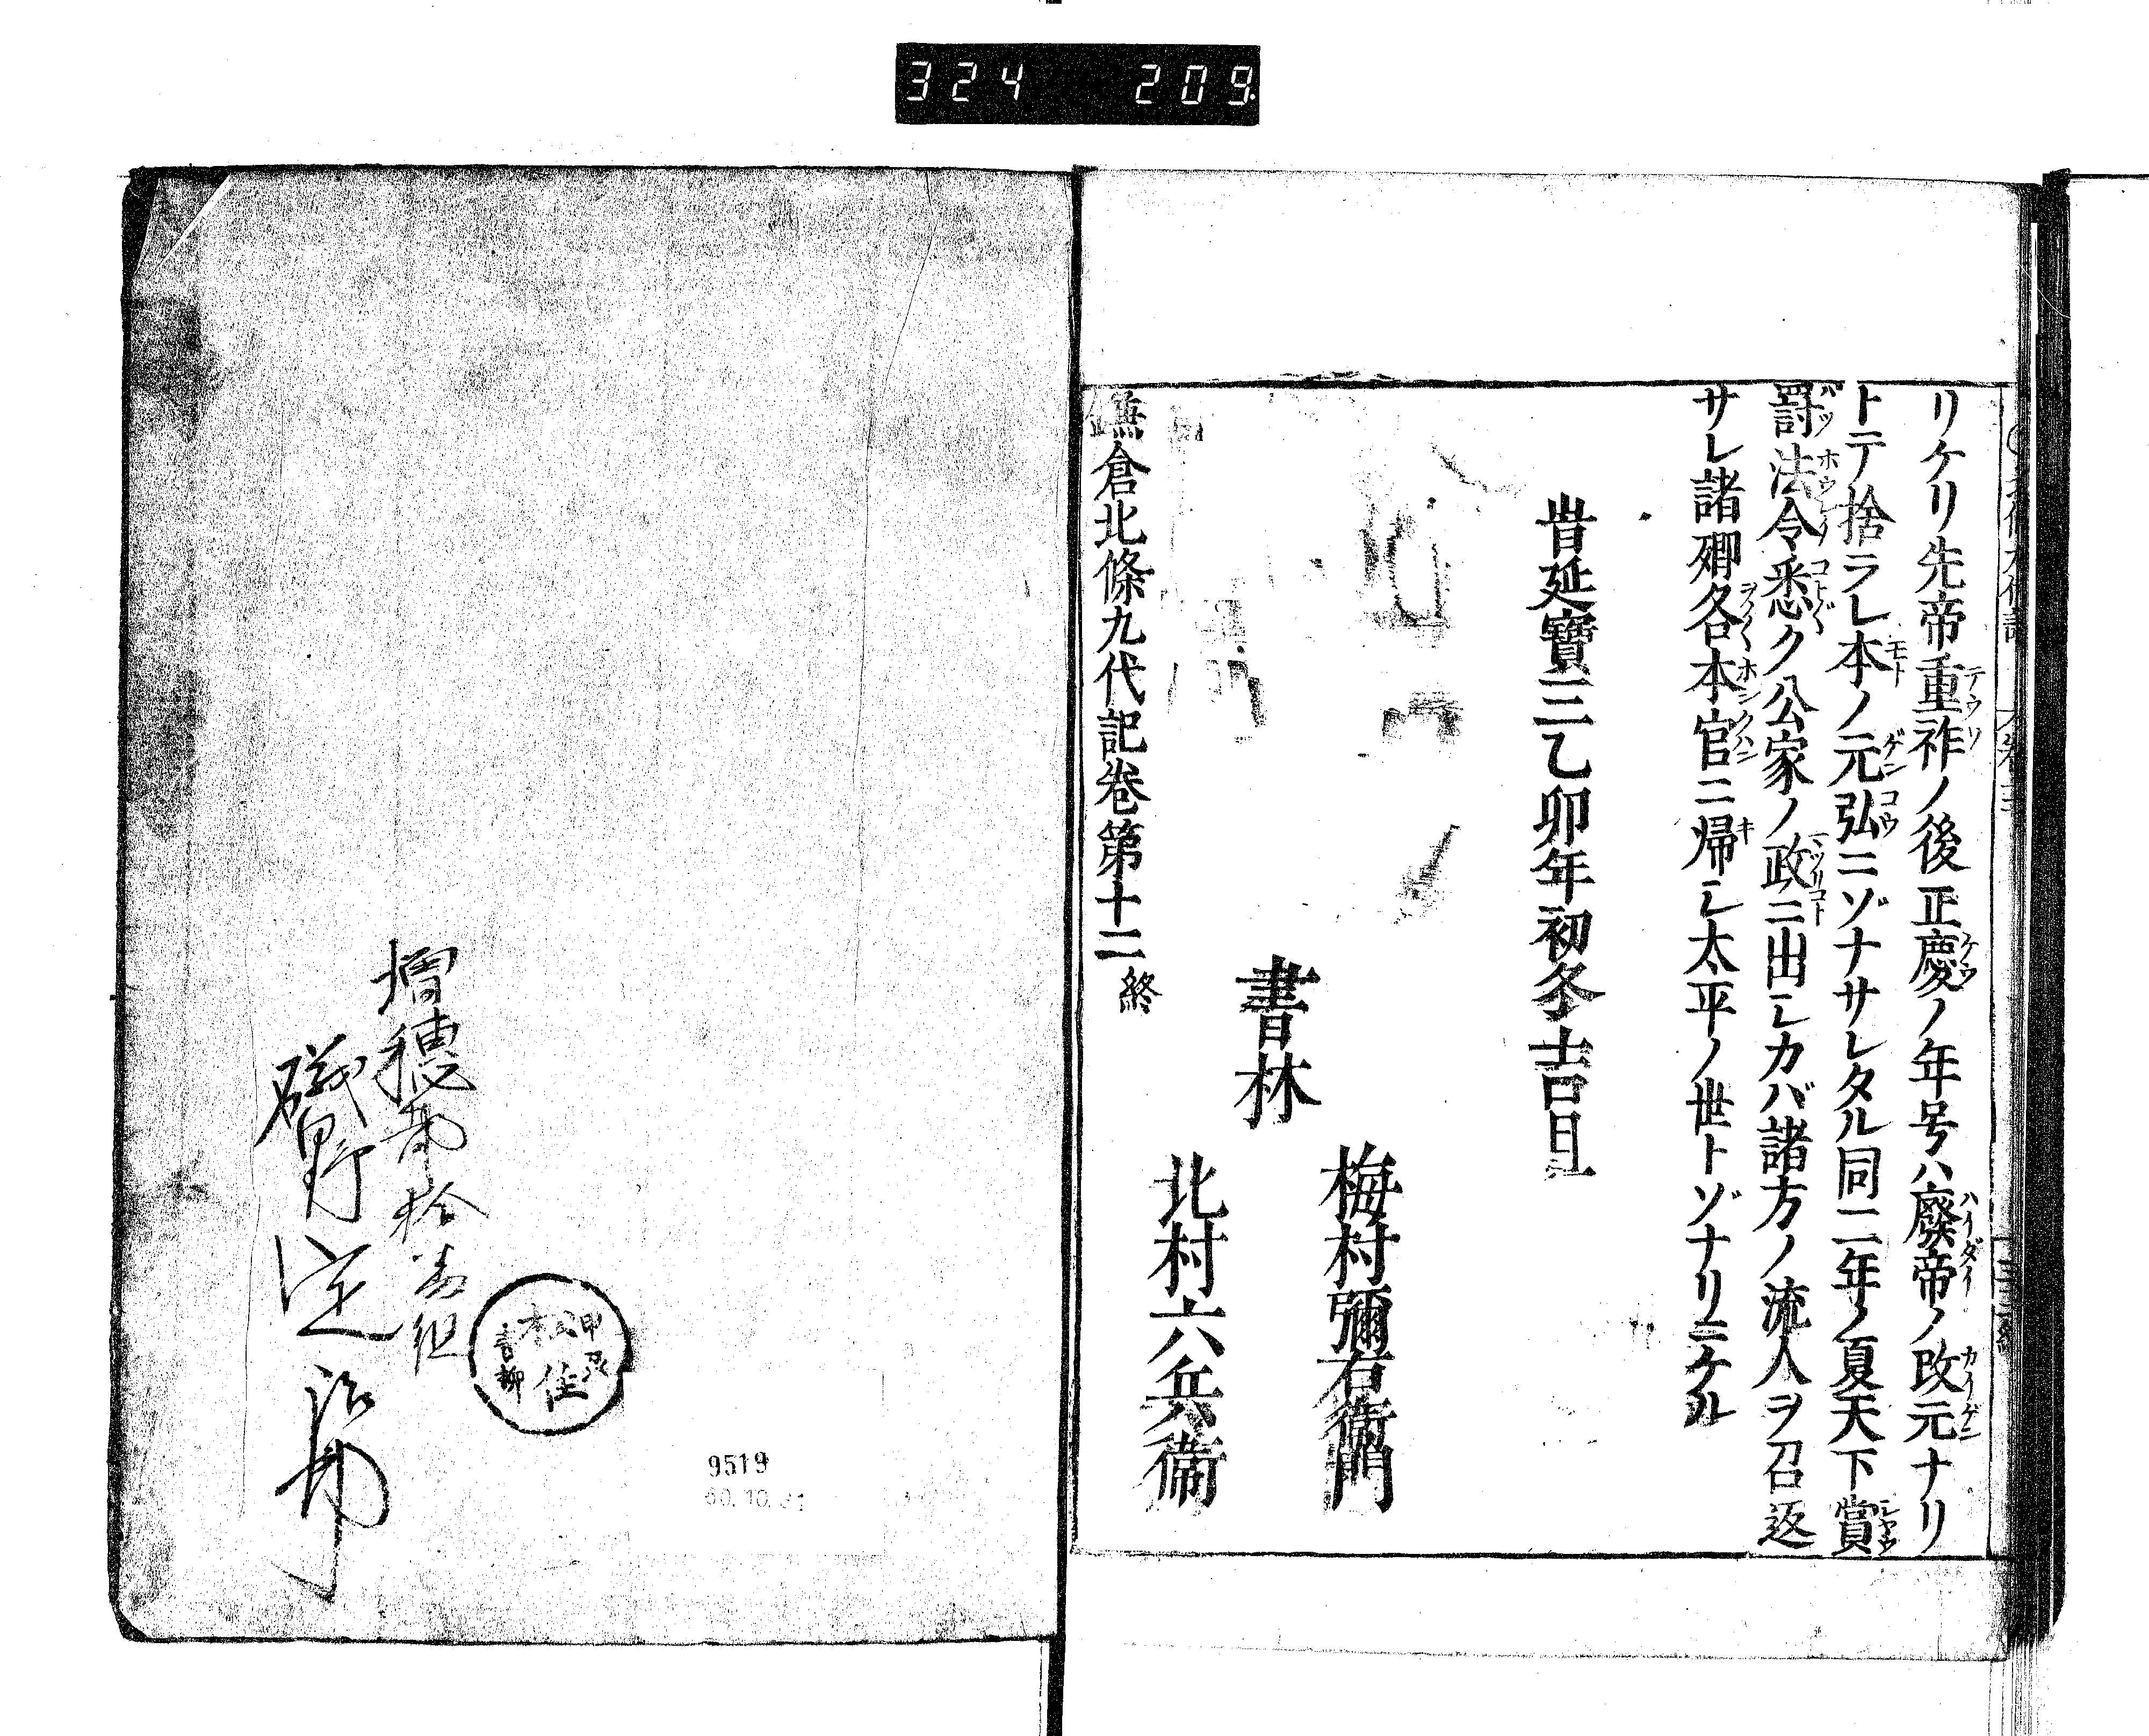 324 209
リケリ先帝重祚ノ後正慶ノ年号ハ廢帝ノ改元ナリ
トテ捨ラレ本ノ元弘ニゾナサレタル同二年ノ夏天下賞
罰法令悉ク公家ノ政ニ出シカバ諸方ノ流人ヲ召返
サレ諸卿各本官ニ帰シ太平ノ世トゾナリニケル
旹延寶三乙卯年初冬吉旦
梅村彌右衛門
書林
北村六兵衛
鎌倉北條九代記卷第十二終
増穂
磯野定治
9519
60.10.